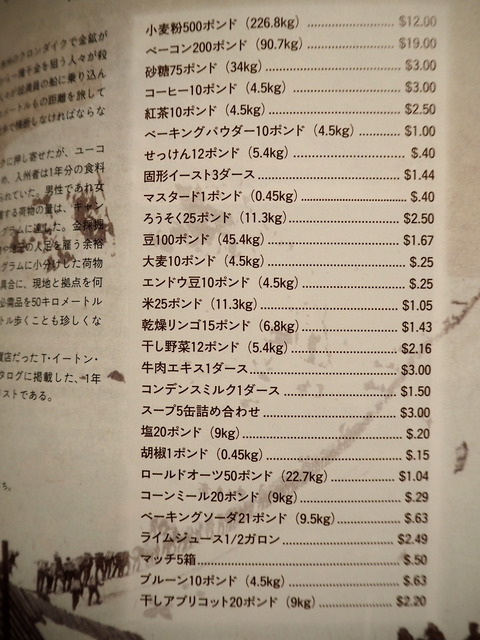 のクロンダイクで金鉱が
攫千金を狙う人々が殺
船に乗り込ん
メートルもの距離を旅して
しなければならな
に押し寄せたが、ユーコ
め、入州者は1年分の食料
られていた。男性であれ女
する荷物の量は、キャン
グラムに達した。金採掘
人足を雇う余裕
グラムに小分けした荷物
具合に、現地と拠点を何
必需品を50キロメートル
トル歩くことも珍しくな
店だったT・イートン・
タログに掲載した、1年
リストである。
ち。
小麦粉500ポンド（226.8kg） $12.00
ベーコン200ポンド（90.7kg） $19.00
砂糖75ポンド（34kg） $3.00
コーヒー10ポンド（4.5kg） $3.00
紅茶10ポンド（4.5kg） $2.50
ベーキングパウダー10ポンド（4.5kg） $1.00
せっけん12ポンド（5.4kg） $.40
固形イースト3ダース $1.44
マスタード1ポンド（0.45kg） $.40
ろうそく25ポンド（11.3kg） $2.50
豆100ポンド（45.4kg） $1.67
大麦10ポンド（4.5kg） $.25
エンドウ豆10ポンド（4.5kg） $.25
米25ポンド（11.3kg） $1.05
乾燥リンゴ15ポンド（6.8kg） $1.43
干し野菜12ポンド（5.4kg） $2.16
牛肉エキス1ダース $3.00
コンデンスミルク1ダース $1.50
スープ5缶詰め合わせ $3.00
塩20ポンド（9kg） $.20
胡椒1ポンド（0.45kg） $.15
ロールドオーツ50ポンド（22.7kg） $1.04
コーンミール20ポンド（9kg） $.29
ベーキングソーダ21ポンド（9.5kg） $.63
ライムジュース1/2ガロン $2.49
マッチ5箱 $.50
プルーン10ポンド（4.5kg） $.63
干しアプリコット20ポンド（9kg） $2.20